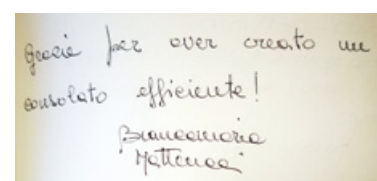 Grazie per aver creato un
consolato efficiente!
Biancamaria